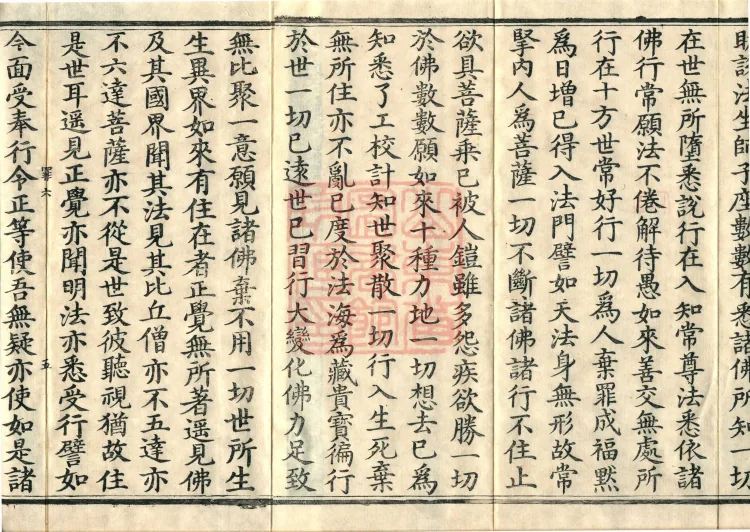 財說法生師子座數數有悉諸佛所知一切
在世無所墮悉說行在入知常尊法悉依諸
佛行常願法不倦解待愚如來善交無處所
行在十方世常好行一切為人棄罪成福默
為日增已得入法門譬如天法身無形故常
堅內人為菩薩一切不斷諸佛諸行不住止
欲具菩薩乘已被人鎧雖多怨疾欲勝一切
於佛數數願如來十種力地一切想去已為
知悉了工校計知世聚散一切行入生死棄
無所住亦不亂已度於法海為藏貴寶徧行
於世一切已遠世已習行大變化佛力足致
無比聚一意願見諸佛棄不用一切世所生
生異界如來有住在者正覺無所著遥見佛
及其國界聞其法見其比丘僧亦不五達亦
不六達菩薩亦不從是世致彼聽視猶故住
是世耳遥見正覺亦聞明法亦悉受行譬如
今面受奉行令正等使吾無疑亦使如是諸
罪六
五